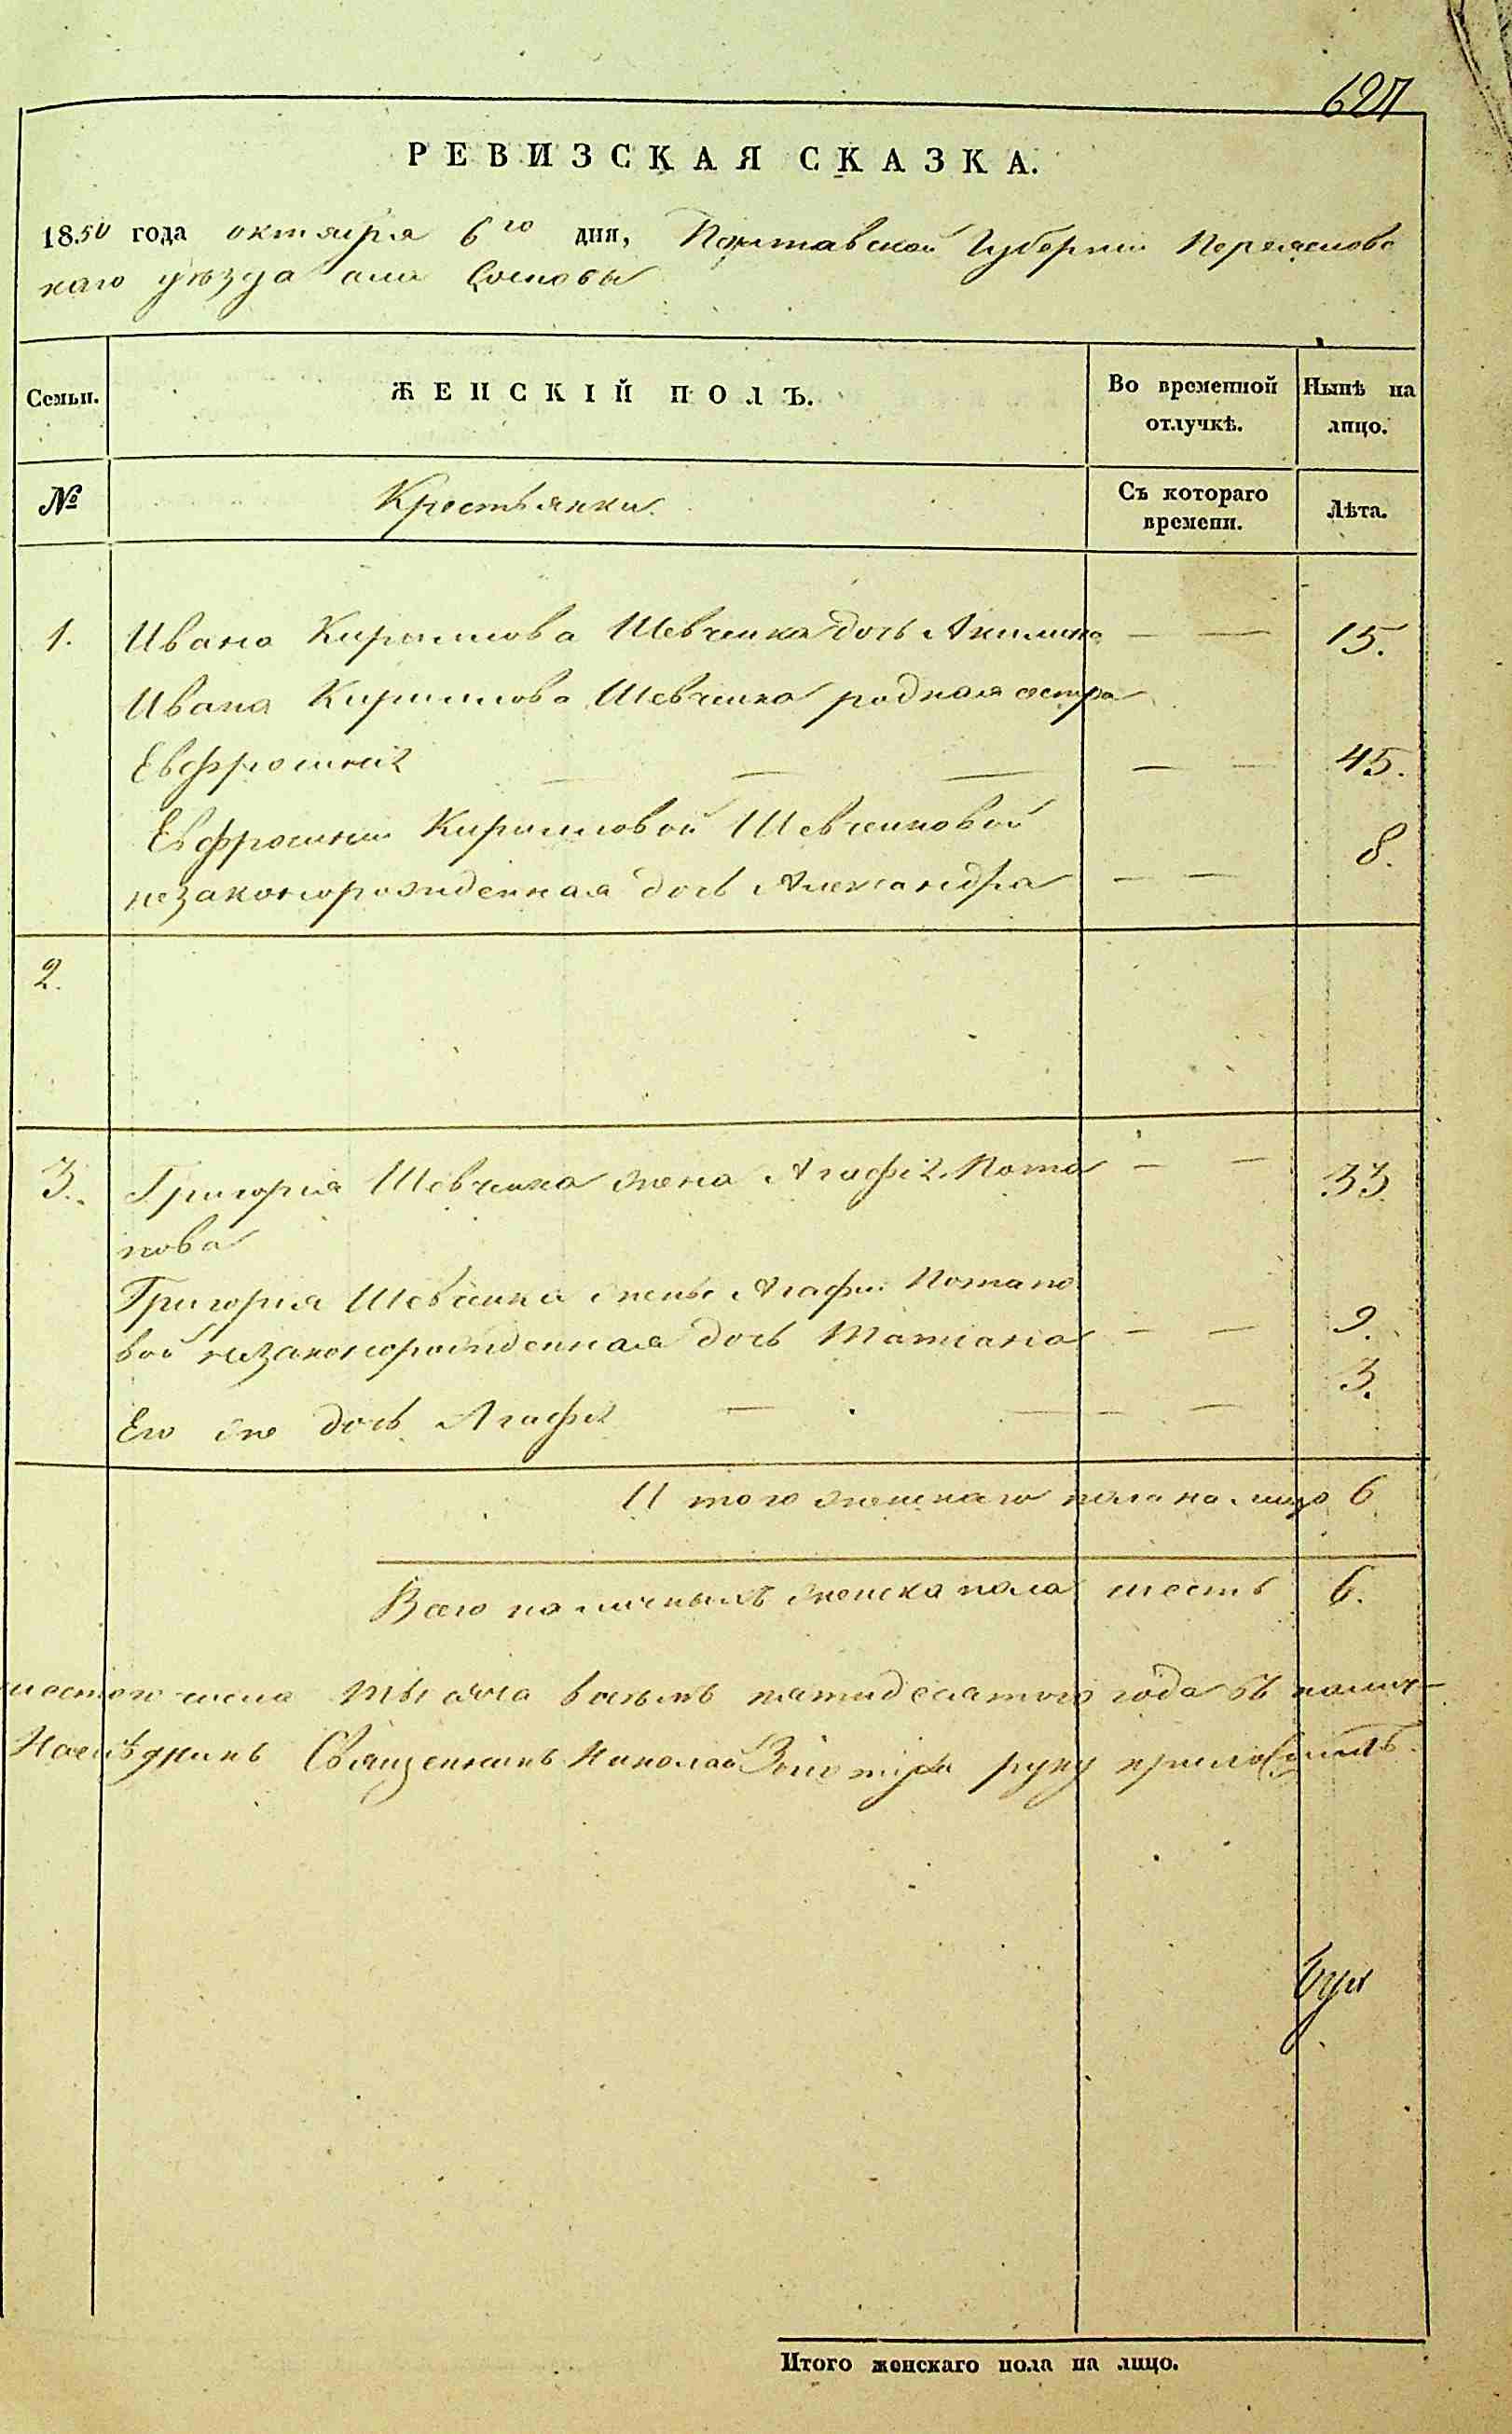 627
РЕВИЗСКАЯ СКАЗКА.
1850 года октября 6го дня, Полтавской Губернии Переяславс
каго уѣзда села Сосновы
Семьи.
ЖЕНСКІЙ ПОЛЪ.
Во временной отлучкѣ.
Нынѣ на лицо.
№
Крестьянки.
Съ котораго времени.
Лѣта.
1. Ивана Кирилова Шевченка дочь Акилина — — 15.
Ивана Кирилова Шевченка родная сестра
Евфросинія — — — — — 45.
Евфросиніи Кириловой Шевченковой
незаконорожденная дочь Александра — — 8.
2.
3. Григорія Шевченка жена Агафія Пота — — 33
пова
Григорія Шевченка жены Агафіи Потапо
вой незаконорожденная дочь Татіана — — 9.
Его же дочь Агафія — — — — 3.
Итого женскаго пола на лицо 6
Всего наличныхъ женска пола шесть 6.
шестого числа тысяча восемь пятидесятого года въ
Священникъ Николай руку приложилъ.
Итого женскаго пола на лицо.